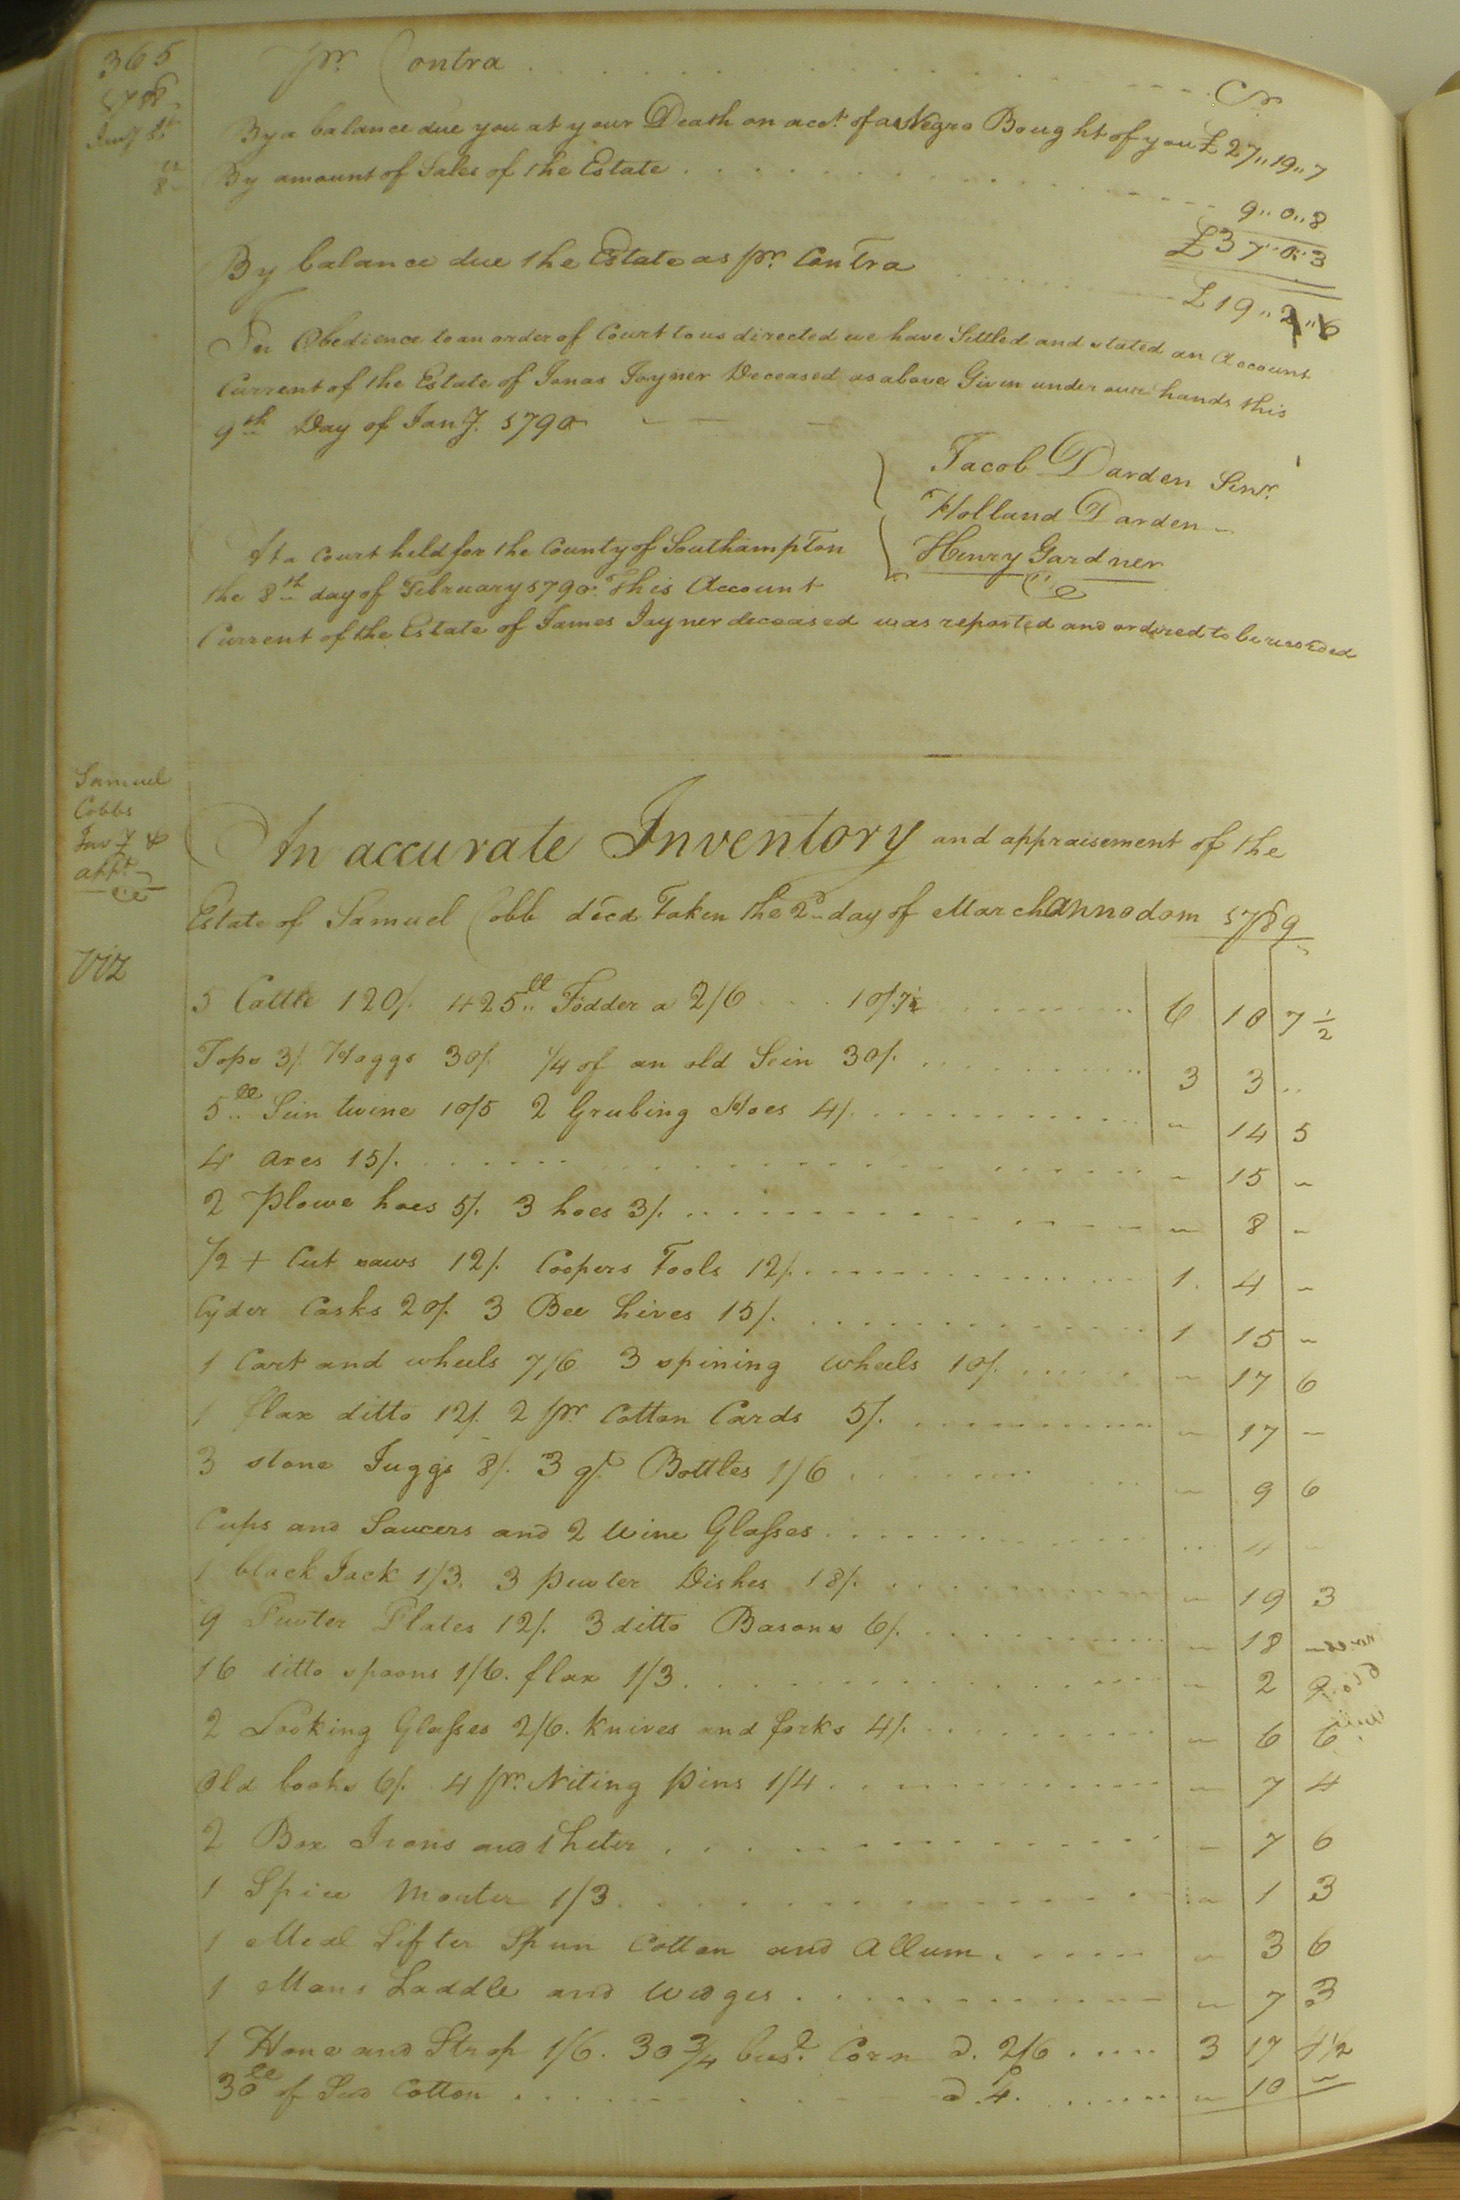 365
pr. Contra . . . . . . Cr.
1788
Jany 1st By a balance due you at your Death on acct. of a Negro Bought of you £ 27,,19,,7
8 By amount of Sales of the Estate . . . . . . 9,,0,,8
£37,,0,,3
By balance due the Estate as pr. Contra . . . . £19,,2,,6
In Obedience to an order of Court to us directed we have Settled and stated an Account
Current of the Estate of Jonas Joyner Deceased as above Given under our hands this
9th Day of Jany. 1790
Jacob Darden Senr.
Holland Darden
Henry Gardner
At a Court held for the County of Southampton
the 8th day of February 1790 This Account
Current of the Estate of James Joyner deceased was reported and ordered to be recorded
Samuel
Cobbs
Invy &
appt.
An accurate Inventory and appraisement of the
Estate of Samuel Cobb decd Taken the 2d day of March annodom 1789
Viz
5 Cattle 120/. 425ll Fodder a 2/6 . . 10/.7½ . . . 6 10 7½
Tops 3/. Hoggs 30/. ¼ of an old Sein 30/. . . . 3 3 ..
5ll Sein twine 10/5 2 Grubing Hoes 4/. . . . ~ 14 5
4 axes 15/. . . . ~ 15 ~
2 Plowe hoes 5/. 3 hoes 3/. . . . ~ 8 ~
½ + Cut saws 12/. Coopers Tools 12/. . . . 1. 4 ~
Cyder Casks 20/. 3 Bee hives 15/. . . . 1 15 ~
1 Cart and wheels 7/6 3 spining wheels 10/. . . . ~ 17 6
1 flax ditto 12/. 2 pr. Cotton Cards 5/. . . . ~ 17 ~
3 stone Juggs 8/. 3 qt. Bottles 1/6 . . . ~ 9 6
Cups and Saucers and 2 wine Glasses . . . 4 ~
1 black Jack 1/3. 3 pewter Dishes 18/. . . . ~ 19 3
9 Pewter Plates 12/. 3 ditto Basons 6/. . . . ~ 18 ~
16 ditto spoons 1/6. flax 1/3. . . . ~ 2 9
2 Looking Glasses 2/6. knives and forks 4/. . . . ~ 6 6
Old books 6/. 4 pr. Niting pins 1/4 . . . ~ 7 4
2 Box Irons and 1 heter . . . ~ 7 6
1 Spice Morter 1/3. . . . ~ 1 3
1 Meal Sifter Spun Cotton and Allum . . . ~ 3 6
1 Mans Saddle and wedges . . . ~ 7 3
1 Hone and Strop 1/6. 30¾ bus. Corn a. 2/6 . . . 3 17 4½
30ll of Seed Cotton . . . a. 4. . . . ~ 10 ~